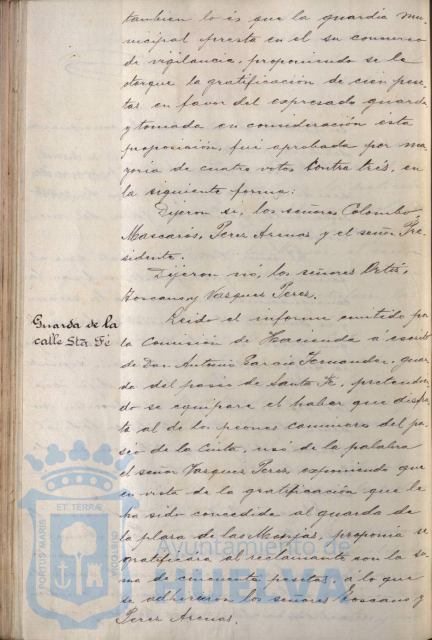 tambien lo es que la guardia mu-
nicipal presta en el su comun
de vigilancia, proponiendo se le
otorgue la gratificación de cien pese-
tas en favor del expresado guarda
y tomada en consideración esta
proposición, fué aprobada por ma-
yoria de cuatro votos contra trés, en
la siguiente forma:
Dijeron si, los señores Colombo,
Mascarós, Perez Arenas y el señor Pre-
sidente.
Dijeron nó, los señores Ortiz,
Toscano y Vasquez Perez.
Guarda de la
calle Sta. Fé
Leido el informe emitido por
la Comision de Hacienda a escrito
de Don Antonio Fernandez, guar-
da del paseo de Santa Fé, pretendien-
do se equipare el haber que disfru-
ta al de los peones camineros del pa-
seo de la Cinta, usó de la palabra
el señor Vasquez Perez exponiendo que
en vista de la gratificación que le
ha sido concedida al guarda de
la plaza de las Monjas, proponia se
gratificara al reclamante con la su-
ma de cincuenta pesetas, á lo que
se adhirieron los señores Toscano y
Perez Arenas.
PORTUS MARIS
ET TERRAE
CUSTODIA
Ayuntamiento de
HUELVA